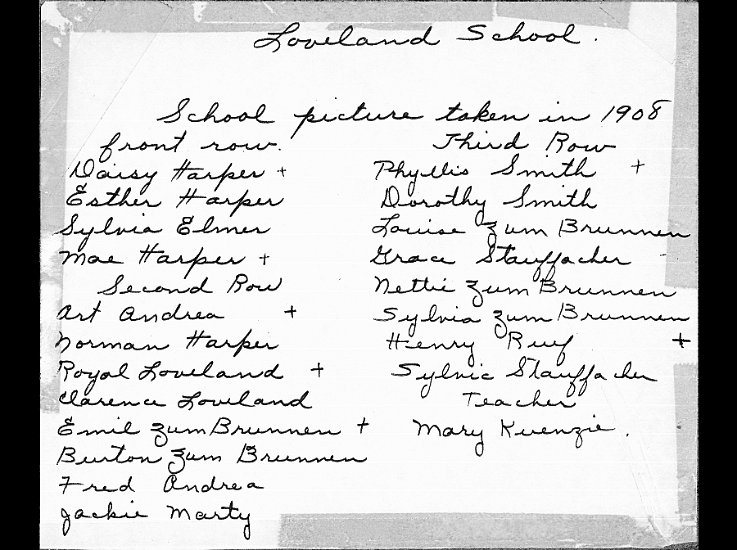 Loveland School.
School picture taken in 1908
front row.
Daisy Harper +
Esther Harper
Sylvia Elmer
Mae Harper +
Second Row
Art Andrea +
Norman Harper
Royal Loveland +
Clarence Loveland
Emil Zum Brunnen +
Burton Zum Brunnen
Fred Andrea
Jackie Marty
Third Row
Phyllis Smith +
Dorothy Smith
Louise Zum Brunnen
Grace Stauffacher
Nettie Zum Brunnen
Sylvia Zum Brunnen
Henry Ruf +
Sylvia Stauffacher
Teacher
Mary Kuenzie.